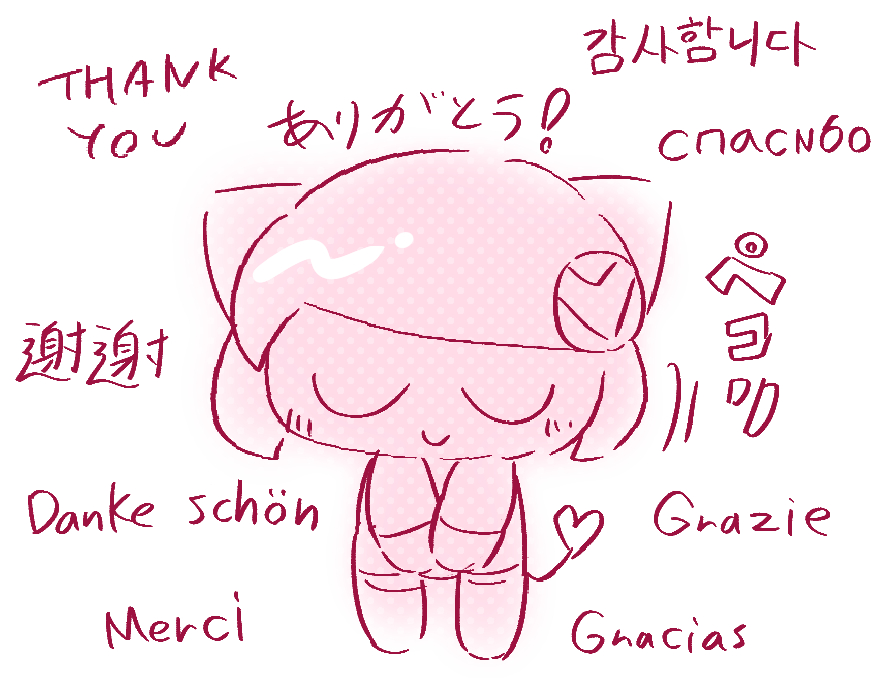 THANK
YOU
ありがとう!
감사합니다
спасибо
ペコリ
謝謝
Danke schön
Grazie
Merci
Gracias